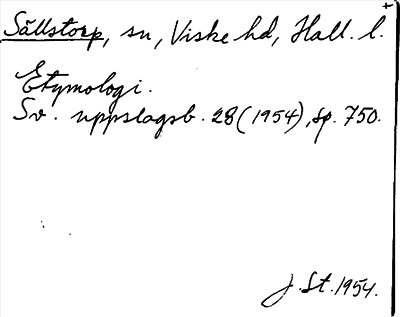 Sällstorp, sn, Viske hd, Hall. l.
Etymologi.
Sv. uppslagsb. 28 (1954), sp. 750.
J. St. 1954.